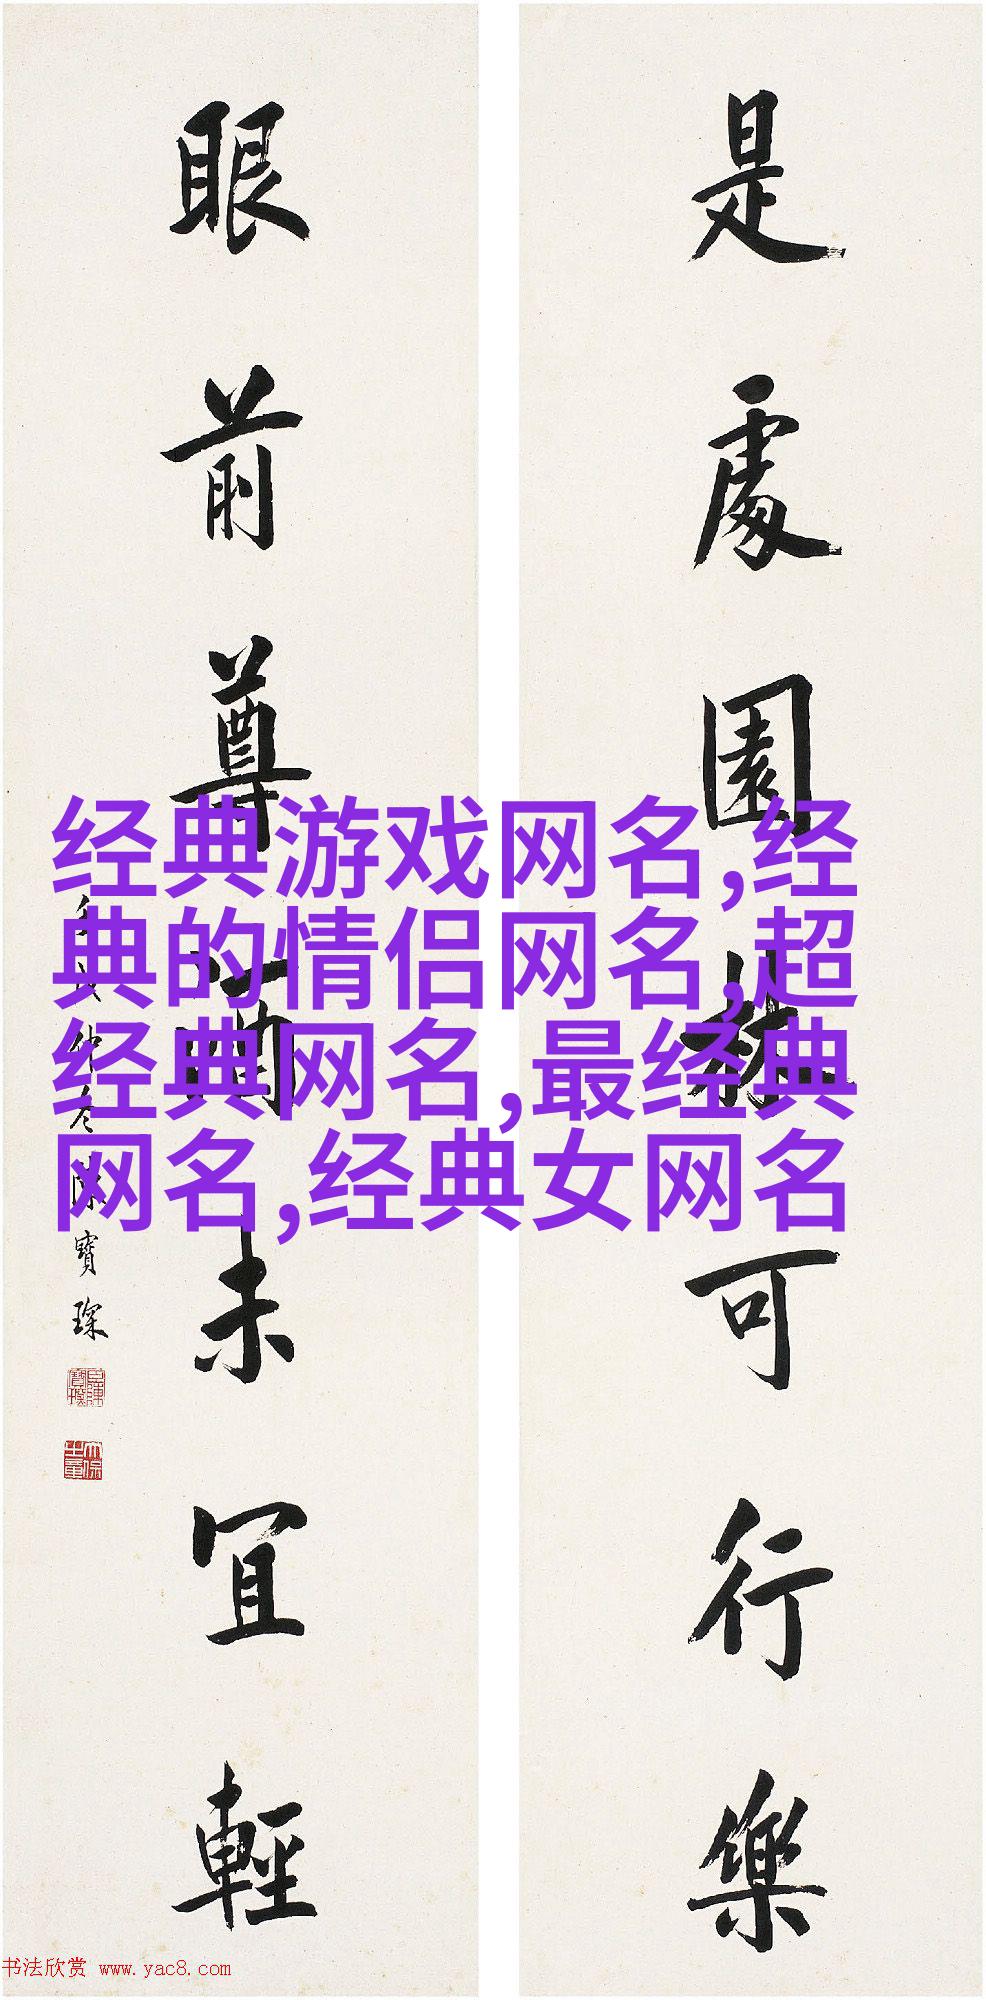 是處園林可行樂
眼前尊酒未宜輕
仲冬陳寶琛
经典游戏网名,经
典的情侣网名,超
经典网名,最经典
网名,经典女网名
书法欣赏 www.yac8.com